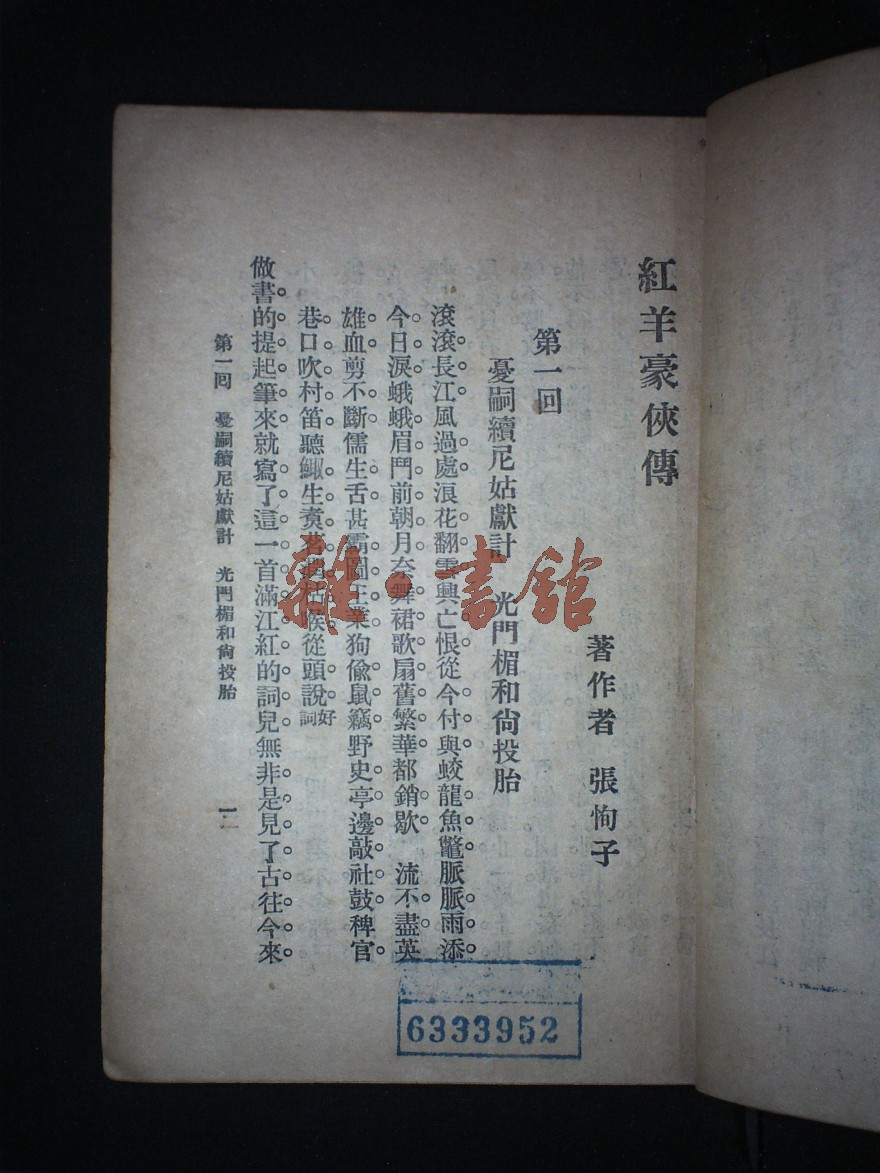 紅羊豪俠傳
著作者 張恂子
第一回
憂嗣續尼姑獻計 光門楣和尙投胎
滾滾長江風過處浪花翻雪興亡恨從今付與蛟龍魚鼈脈脈雨添
今日淚蛾蛾眉鬥前朝月奈舞裙歌扇舊繁華都銷歇 流不盡英
雄血剪不斷儒生舌甚霸圖王業狗偸鼠竊野史亭邊敲社鼓稗官
巷口吹村笛聽鯫生煑茗潤枯喉從頭說好詞
做書的提起筆來就寫了這一首滿江紅的詞兒無非是見了古往今來
第一回 憂嗣續尼姑獻計 光門楣和尙投胎
雜·書館
6333952